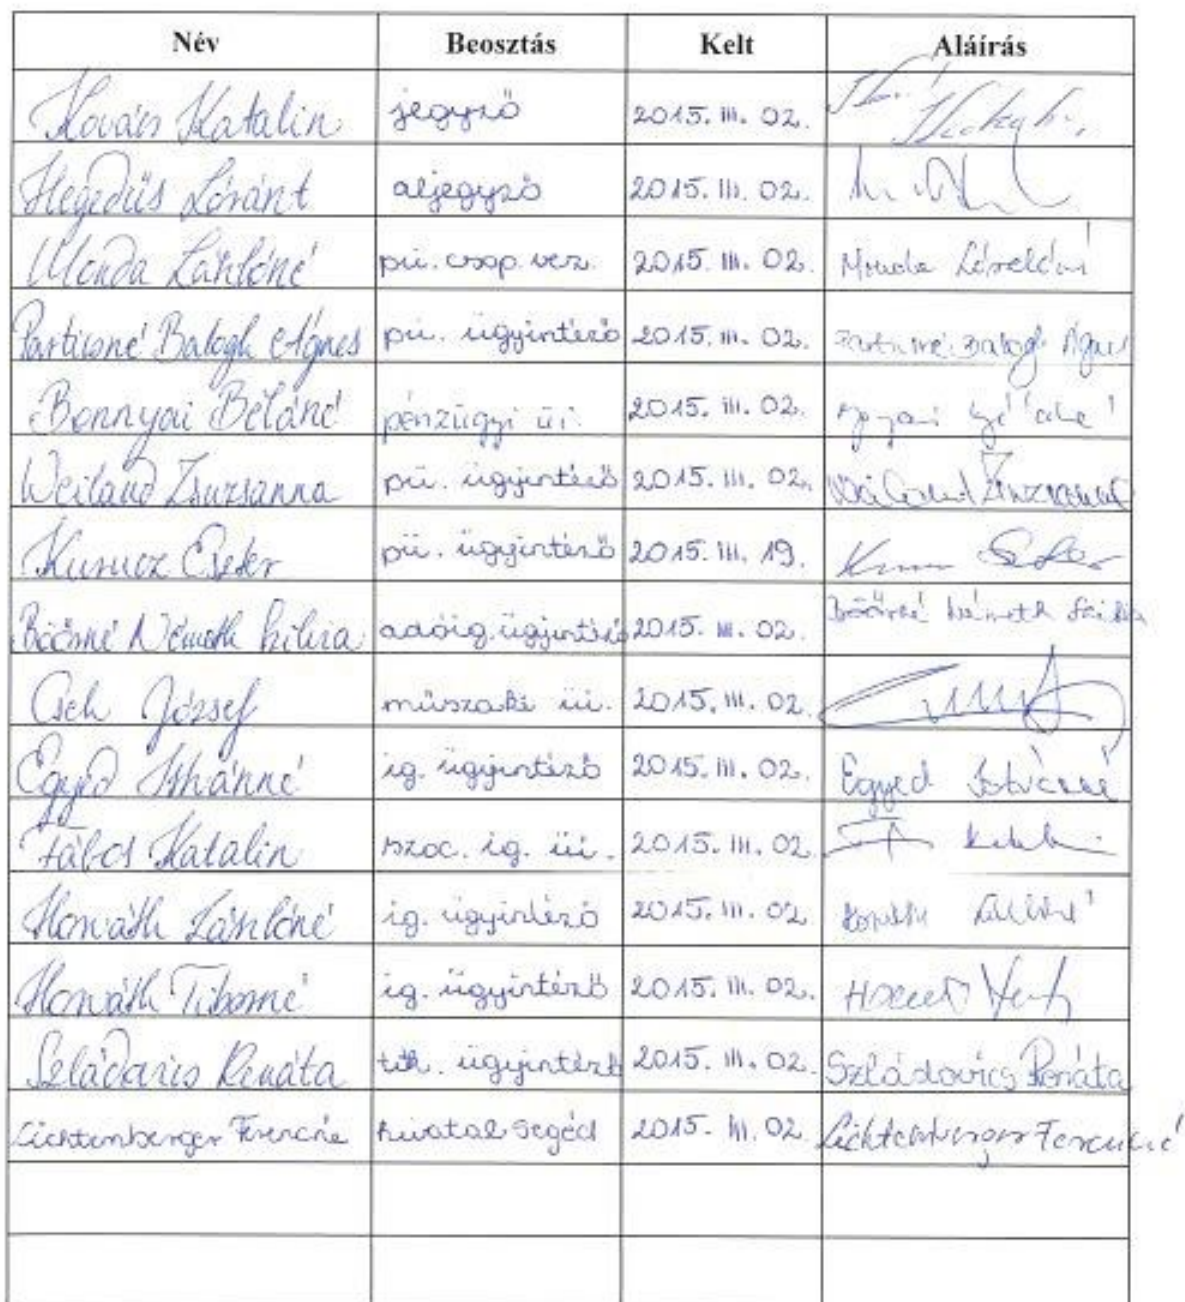 Név Beosztás Kelt Aláírás
Kovács Katalin jegyző 2015. III. 02.
Hegedüs Lóránt aljegyző 2015. III. 02.
Monda Lászlóné pü. csop. vez. 2015. III. 02. Monda Lászlóné
Particsné Balogh Ágnes pü. ügyintéző 2015. III. 02. Particsné Balogh Ágnes
Bonnyai Béláné pénzügyi üi. 2015. III. 02.
Weiland Zsuzsanna pü. ügyintéző 2015. III. 02. Weiland Zsuzsanna
Kurucz Eszter pü. ügyintéző 2015. III. 19. Eszter
Böőrné Németh Szilvia adóig. ügyintéző 2015. III. 02. Böőrné Németh Szilvia
Cseh József műszaki üi. 2015. III. 02.
Egyed Istvánné ig. ügyintéző 2015. III. 02. Egyed Istvánné
Fábos Katalin szoc. ig. üi. 2015. III. 02.
Horváth Lászlóné ig. ügyintéző 2015. III. 02. Horváth Lászlóné
Horváth Tiborné ig. ügyintéző 2015. III. 02.
Szládovics Renáta titk. ügyintéző 2015. III. 02. Szládovics Renáta
Lichtenberger Ferencné hivatalsegéd 2015. III. 02. Lichtenberger Ferencné